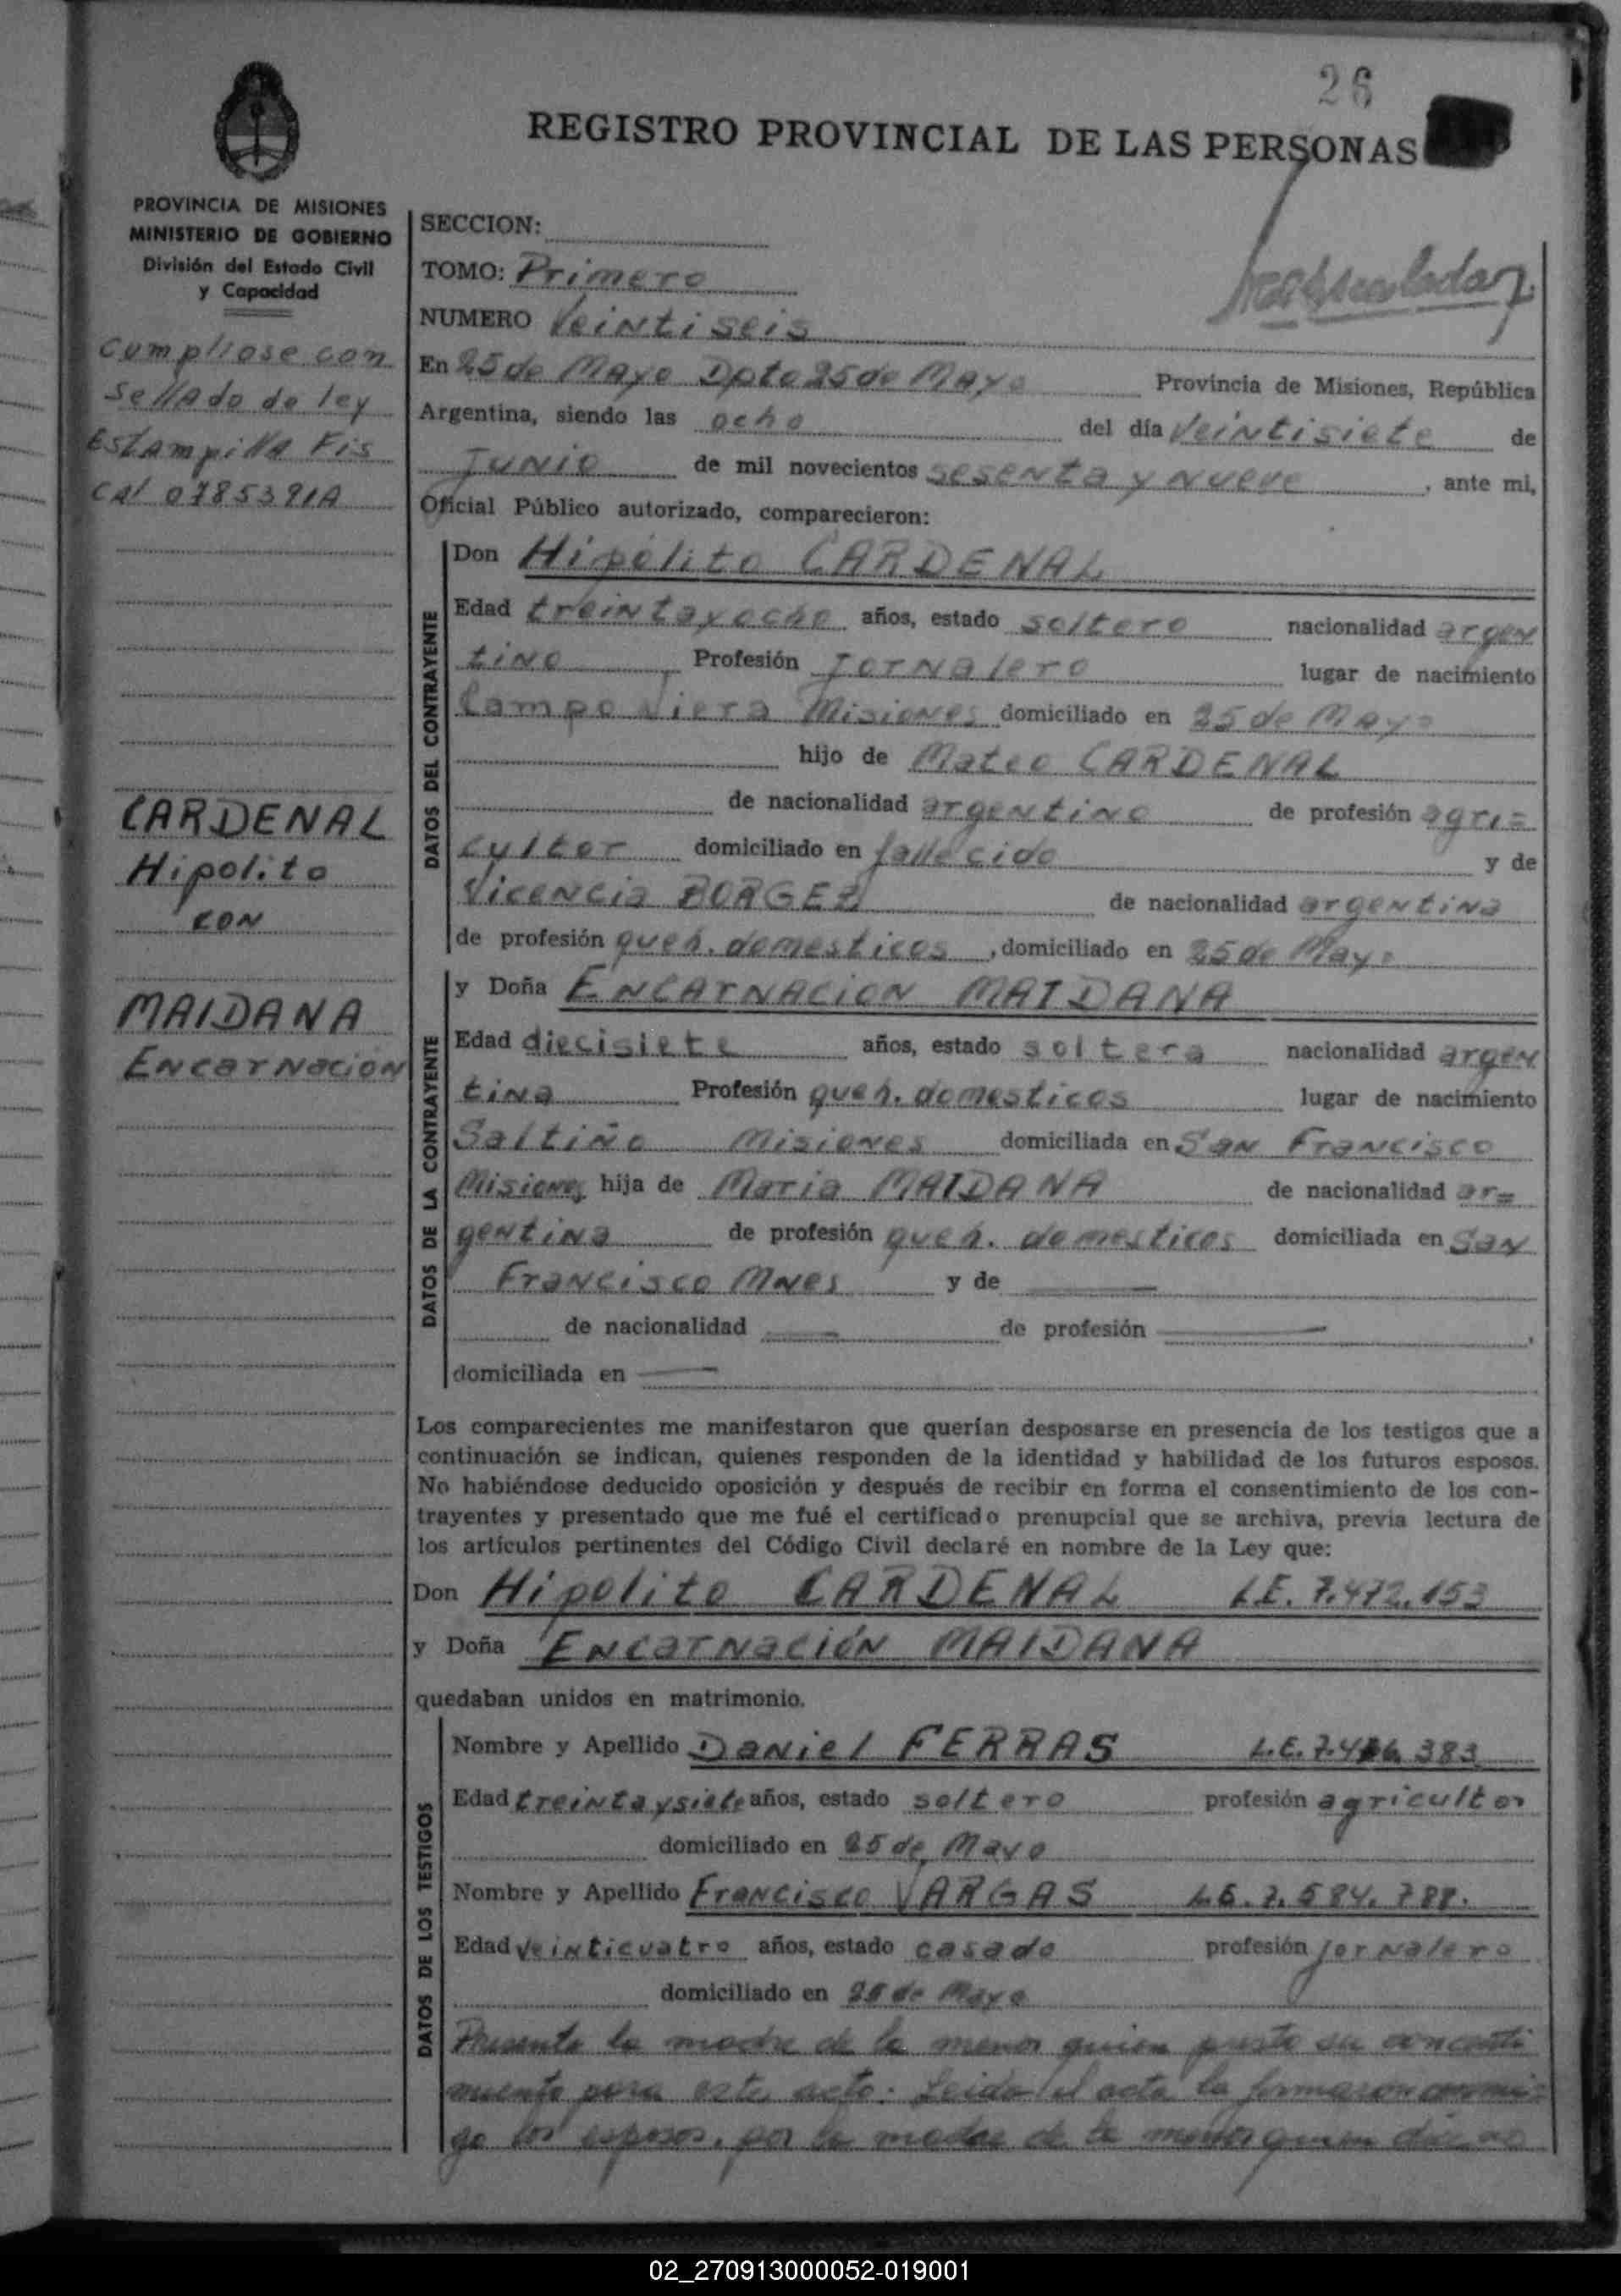 26
REGISTRO PROVINCIAL DE LAS PERSONAS
PROVINCIA DE MISIONES
MINISTERIO DE GOBIERNO
División del Estado Civil
y Capacidad
Cumpliose con
sellado de ley
Estampilla Fis
cal 0785391A
CARDENAL
Hipolito
CON
MAIDANA
Encarnacion
SECCION:
TOMO: Primero
NUMERO Veintiseis
En 25 de Mayo Dpto 25 de Mayo Provincia de Misiones, República
Argentina, siendo las ocho del día Veintisiete de
Junio de mil novecientos sesenta y nueve, ante mi,
Oficial Público autorizado, comparecieron:
DATOS DEL CONTRAYENTE
Don Hipólito CARDENAL
Edad treinta y ocho años, estado soltero nacionalidad argen
tino Profesión Jornalero lugar de nacimiento
Campo Viera Misiones domiciliado en 25 de Mayo
hijo de Mateo CARDENAL
de nacionalidad argentino de profesión agri=
cultor domiciliado en fallecido y de
Vicencia BORGEZ de nacionalidad argentina
de profesión queh. domesticos, domiciliado en 25 de Mayo
DATOS DE LA CONTRAYENTE
y Doña Encarnacion MAIDANA
Edad diecisiete años, estado soltera nacionalidad argen
tina Profesión queh. domesticos lugar de nacimiento
Saltiño Misiones domiciliada en San Francisco
Misiones hija de Maria MAIDANA de nacionalidad ar=
gentina de profesión queh. domesticos domiciliada en San
Francisco Mnes y de
de nacionalidad de profesión ,
domiciliada en
Los comparecientes me manifestaron que querían desposarse en presencia de los testigos que a
continuación se indican, quienes responden de la identidad y habilidad de los futuros esposos.
No habiéndose deducido oposición y después de recibir en forma el consentimiento de los con-
trayentes y presentado que me fué el certificado prenupcial que se archiva, previa lectura de
los artículos pertinentes del Código Civil declaré en nombre de la Ley que:
Don Hipolito CARDENAL L.E. 7.472.153
y Doña Encarnación MAIDANA
quedaban unidos en matrimonio.
DATOS DE LOS TESTIGOS
Nombre y Apellido Daniel FERRAS L.E. 383
Edad treinta y siete años, estado soltero profesión agricultor
domiciliado en 25 de Mayo
Nombre y Apellido Francisco VARGAS L.E. 7.584.788.
Edad veinticuatro años, estado casado profesión jornalero
domiciliado en 25 de Mayo
Presente la madre de la menor quien presta su concenti
miento para este acto. Leida el acta la firmaron conmi=
go los esposos, por la madre de la menor quien dice no
02_270913000052-019001